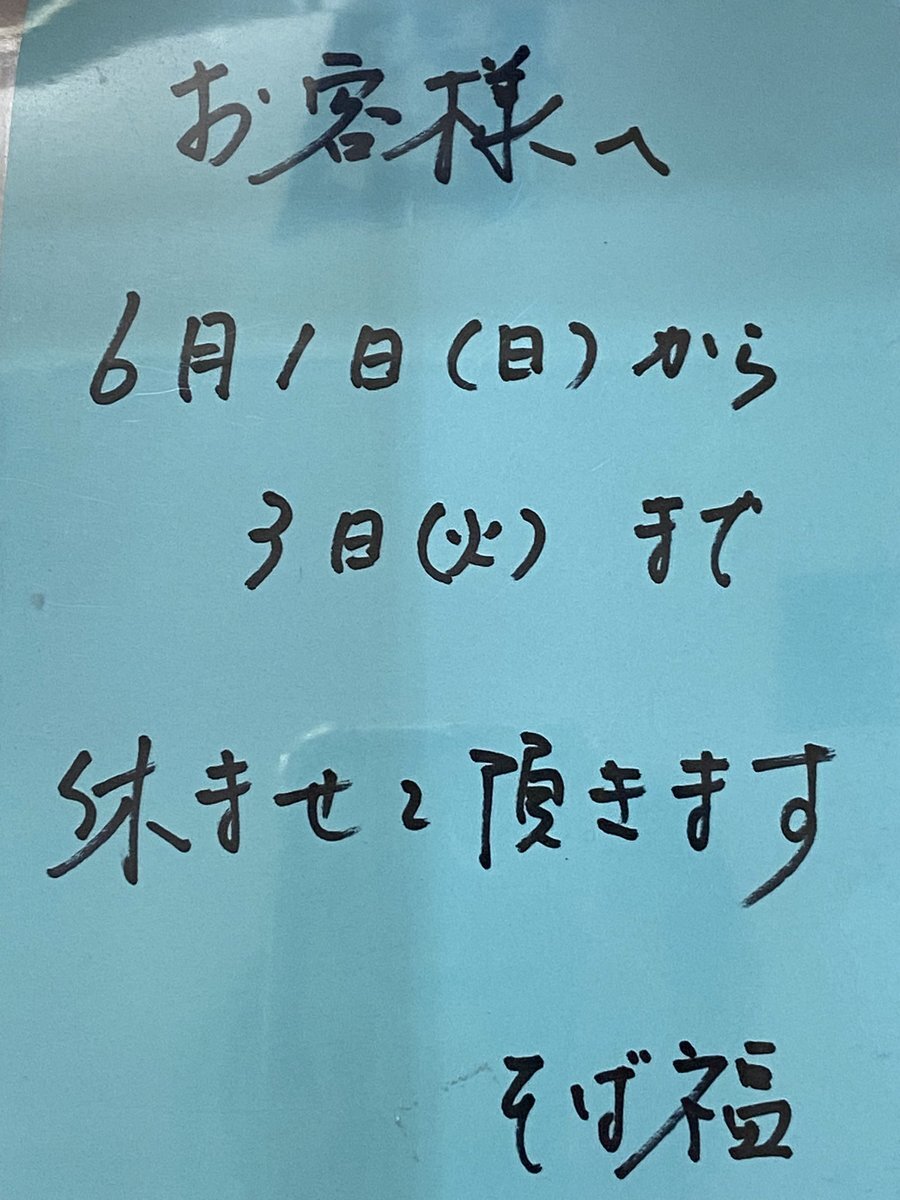 お客様へ
6月1日(日)から
3日(火)まで
休ませて頂きます
そば福